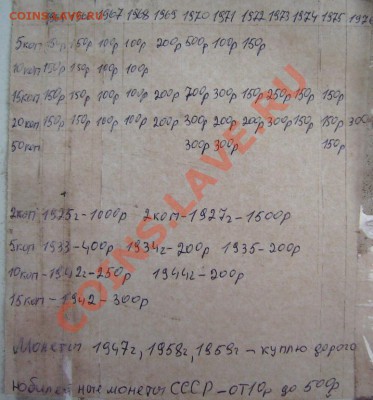 1967 1968 1969 1970 1971 1972 1973 1974 1975 1976
5коп 150р 150р 100р 100р 200р 500р 100р 150р
10коп 150р 150р 100р 100р
15коп 150р 150р 100р 100р 200р 700р 300р 150р 250р 150р 150р
20коп 150р 150р 100р 100р 200р 300р 200р 200р 300р 150р 150р 300
50коп 300р 300р 150р
2коп 1925г-1000р 2коп-1927г-1500р
5коп 1933-400р 1934г-200р 1935-200р
10коп-1942г-250р 1944г-200р
15коп-1942-300р
Монеты 1947г, 1958г, 1959г-куплю дорого
юбилейные монеты СССР-ОТ10р до 500р
COINS.LAVE.RU